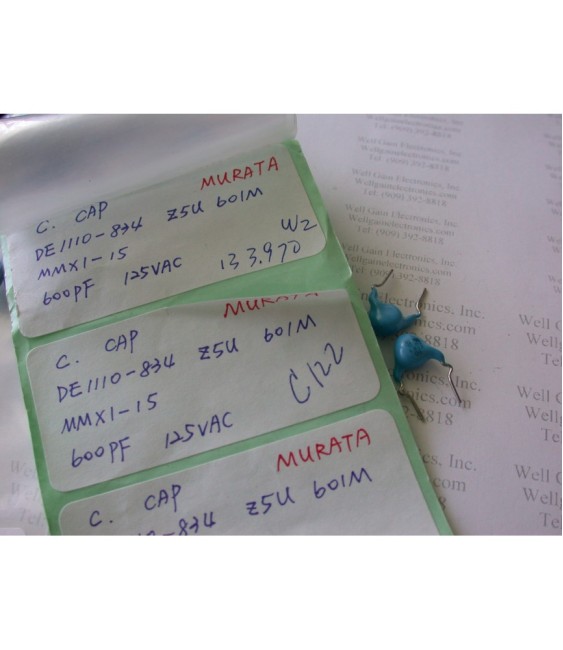 MURATA
C. CAP
DE1110-834 Z5U 601M
MMX1-15
600PF 125VAC 133.970 W2
MURATA
C. CAP
DE1110-834 Z5U 601M
MMX1-15
600PF 125VAC C122
MURATA
C. CAP
-834 Z5U 601M
Tel: (909) 392-8818
Well Gain Electronics, Inc.
Wellgainelectronics.com
Tel: (909) 392-8818
Well Gain Electronics, Inc.
Wellgainelectronics.com
(909) 392-8818
Well Gain Electronics, Inc.
Wellgainelectronics.com
392-8818
Electronics, Inc.
cs.com
8818
onics, Inc.
ics.com
-8818
cs, Inc.
com
8818
Well G
Wellg
Tel
Well G
Wellg
Tel
Well G
Wellg
Te